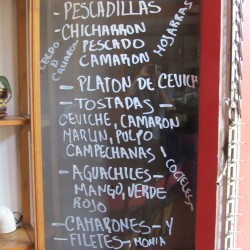 - PESCADILLAS
- CHICHARRON
PESCADO
CAMARON
MOJARRAS
CALDO D
CAMARON
- PLATON DE CEVICH
- TOSTADAS -
CEVICHE, CAMARON
MARLIN, PULPO
CAMPECHANAS!
COCTELES
- AGUACHILES -
MANGO, VERDE
ROJO
- CAMARONES - Y
- FILETES -